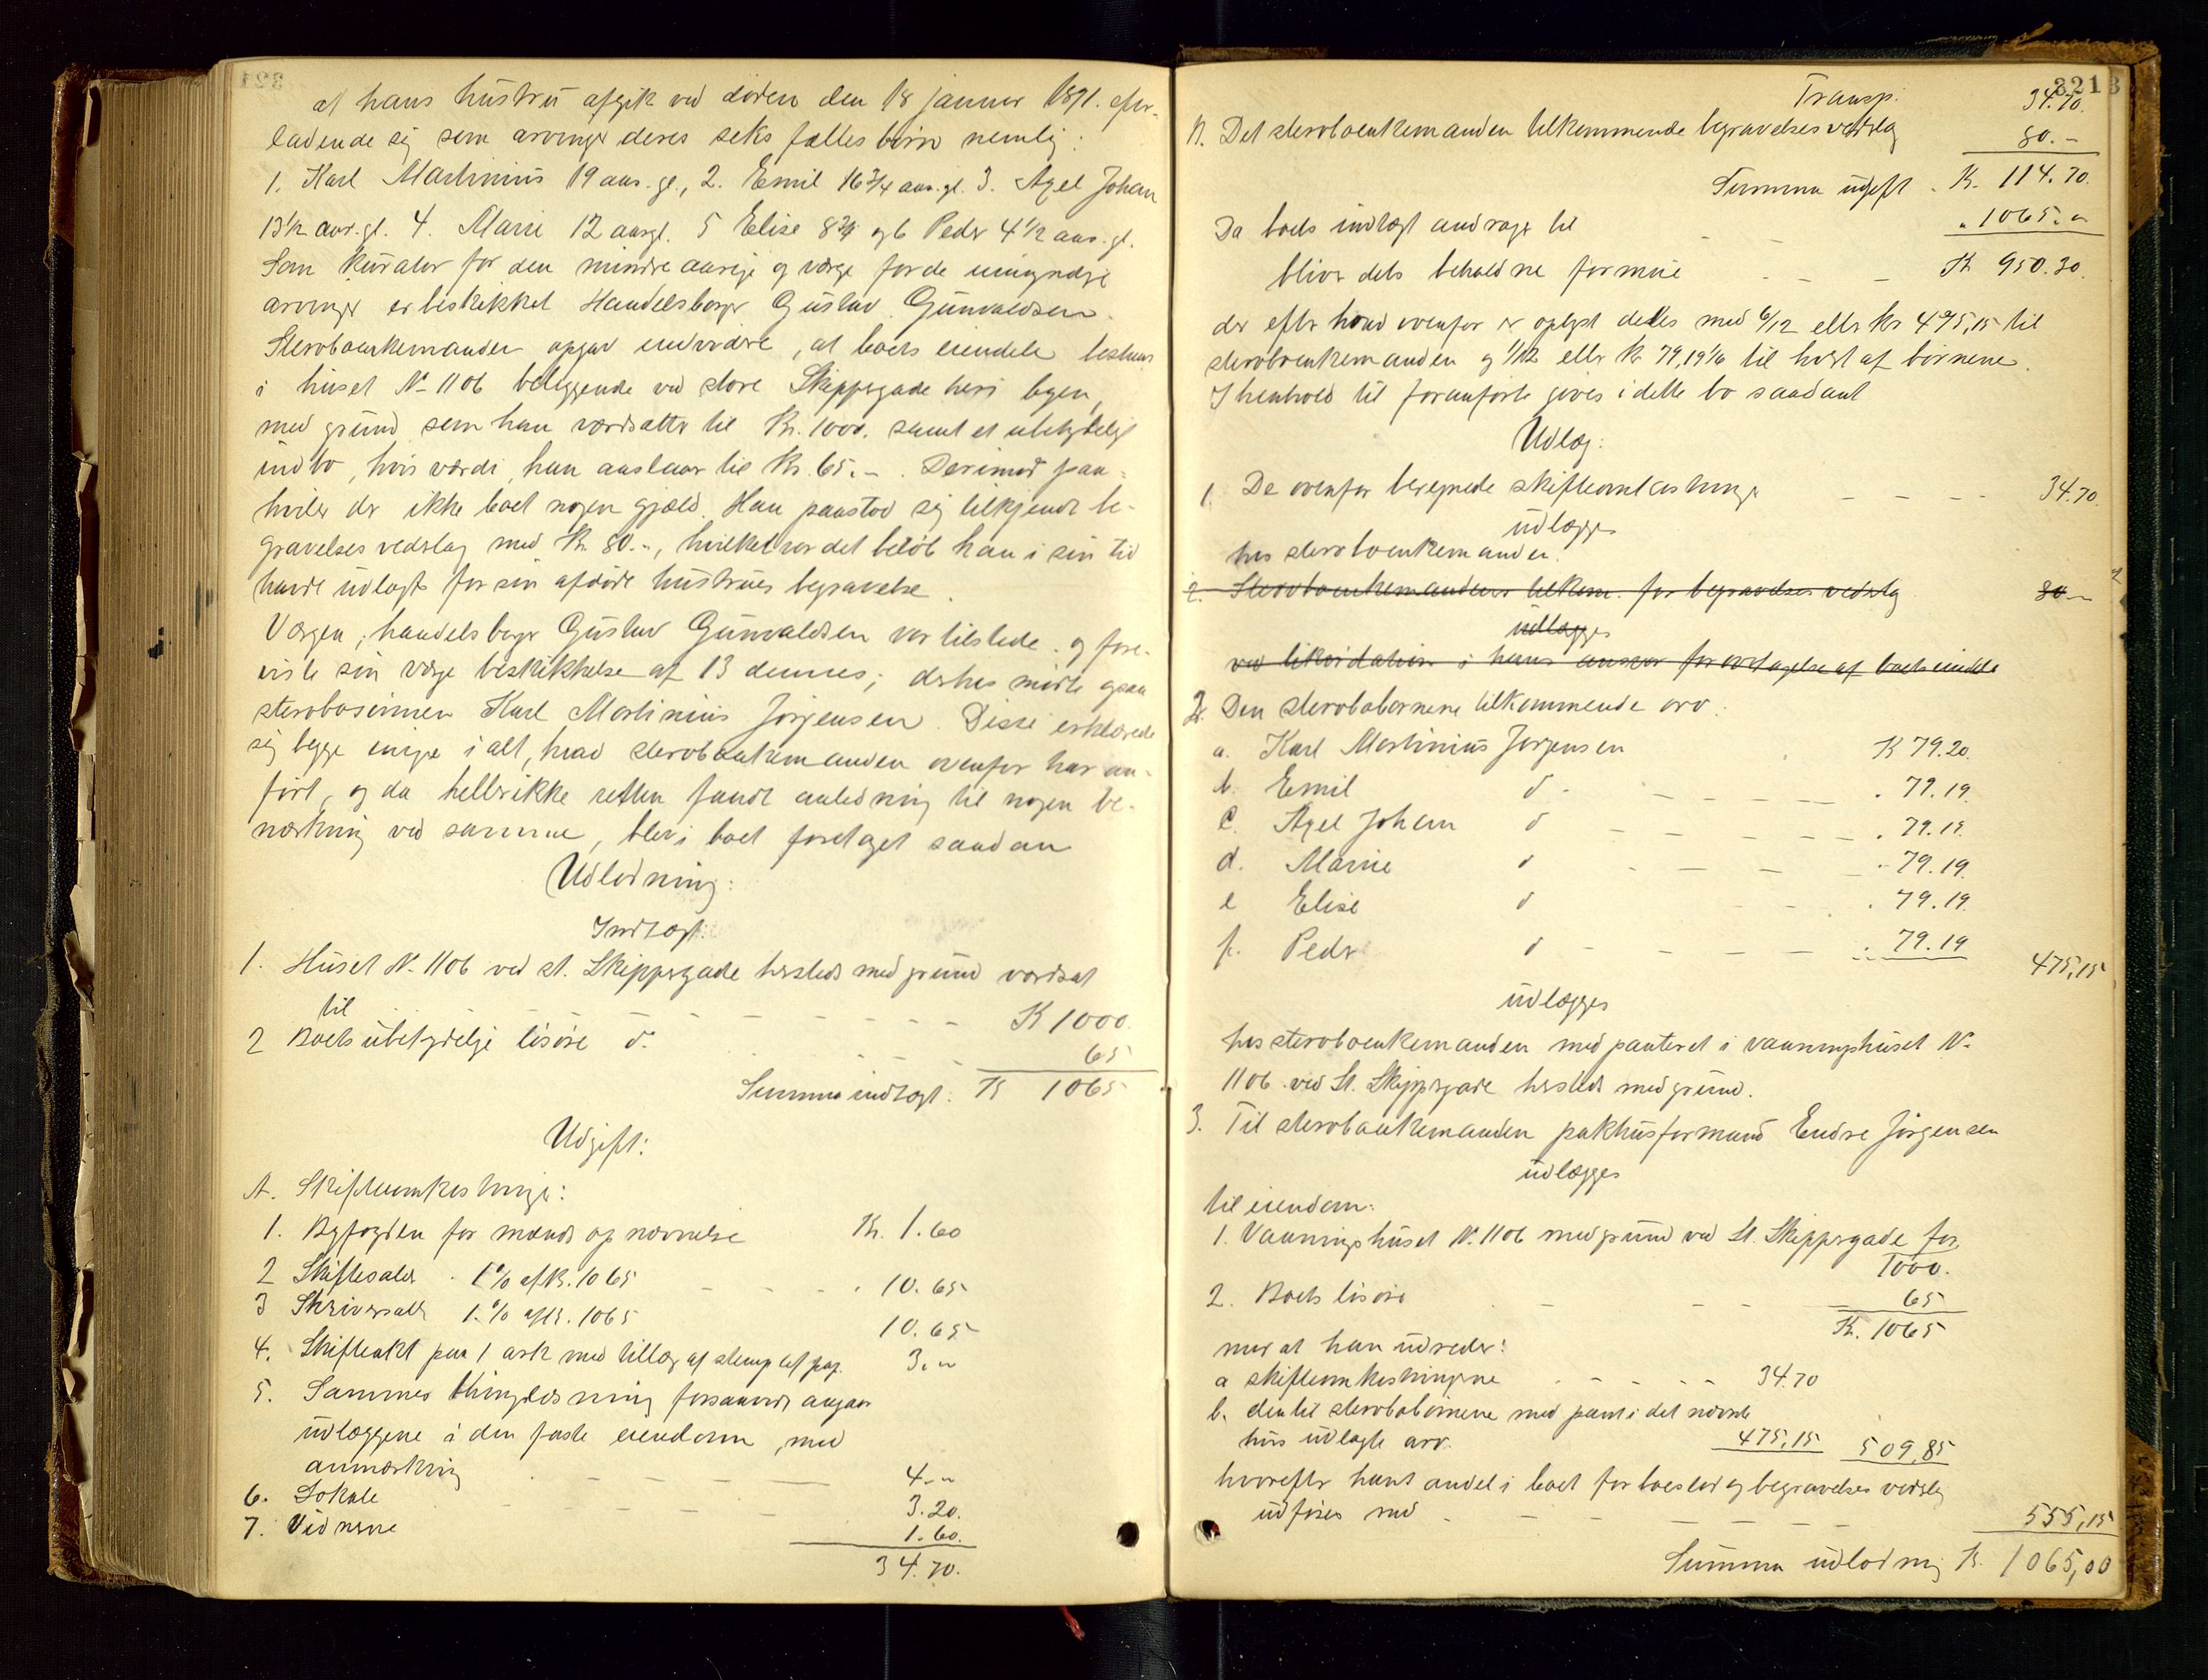 at hans hustru afgik ved døden den 18 januar 1891. efter-
ladende sig som arvinger deres seks fælles børn nemlig:
1. Karl Martinius 19 aar. gl., 2. Emil 16 3/4 aar. gl. 3. Axel Johan
13 1/2 aar. gl. 4. Marie 12 aar gl. 5 Elise 8 3/4 og 6 Peder 4 1/2 aar. gl.
Som kurator for den mindreaarige og værge for de umyndige
arvinger er beskikket Handelsborger Gustav Gunvaldsen.
Stervboenkemanden opgav endvidere, at boets eiendele bestaar
i huset No 1106 beliggende ved store Skippergade her i byen,
med grund som han værdsatte til Kr. 1000. samt et ubetydeligt
indbo, hvis værdi han anslaar til Kr. 65.-. Derimod paa-
hviler der ikke boet nogen gjæld. Han paastod sig tilkjendt be-
gravelsesvederlag med Kr. 80.-, hvilket var det beløb han i sin tid
havde udlagt for sin afdøde hustrues begravelse.
Værgen, handelsborger Gustav Gunvaldsen var tilstede og fore-
viste sin værge beskikkelse af 13 dennes; derhos mødte ogsaa
stervbosønnen Karl Martinius Jørgensen. Disse erklærede
sig begge enige i alt, hvad stervboenkemanden ovenfor har an-
ført, og da heller ikke retten fandt anledning til nogen be-
mærkning ved samme, blev i boet foretaget saadan
Udlodning:
Indtægt:
1. Huset No 1106 ved st. Skippergade hersteds med grund værdsat
til - - - - - - K 1000.
2 Boets ubetydelige løsøre do. - - - 65
Summa indtægt: K 1065
Udgift:
A. Skifteomkostninger:
1. Byfogden for mænds opnævnelse Kr. 1.60
2 Skiftesalær 1% af K. 1065 - - - 10.65
3 Skriversalær 1.% af K. 1065 10.65
4. Skifteakt paa 1 ark med tillæg af stemplet pap. 3.-
5. Sammes thinglæsning forsaavidt angaar
udlæggene i den faste eiendom, med
anmærkning - - - - 4.-
6. Lokale - - - 3.20.
7. Vidnerne 1.60.
34.70.
321
Transp. 34.70.
B. Det stervboenkemanden tilkommende begravelsesvederlag 80.-
Summa udgift. K. 114.70.
Da boets indtægt andrager til - - " 1065.-
bliver dets beholdne formue - - - K 950.30.
der efter hvad ovenfor er oplyst deles med 6/12 eller kr 475,15 til
stervboenkemanden og 1/12 eller kr 79,19 1/6 til hvert af børnene.
I henhold til foranførte gives i dette bo saadant
Udlæg:
1. De ovenfor beregnede skifteomkostninger - - - - 34.70.
udlægges
hos stervboenkemanden.
2. Stervboenkemandens tilkom. for begravelsesvederlag 80.-
udlægges
ved likvidation i hans ansvar for overtagelse af boets eiendele
2. Den stervbobørnene tilkommende arv:
a. Karl Martinius Jørgensen K 79.20.
b. Emil do - - - - - . 79.19.
c. Axel Johan do - - - - - . 79.19.
d. Marie do - - - - 79.19.
e Elise do - - . 79.19.
f. Peder do - - - - . 79.19 475,15
udlægges
hos stervboenkemanden med panteret i vaaningshuset No
1106 ved St. Skippergade hersteds med grund.
3. Til stervboenkemanden pakhusformand Endre Jørgensen
udlægges
til eiendom:
1. Vaaningshuset No. 1106 med grund ved St. Skippergade for
1000.
2. Boets løsøre - - - 65
Kr. 1065
mod at han udreder:
a skifteomkostningerne - - - - - 34.70
b. den til stervbobørnene med pant i det nævnte
hus udlagte arv. 475,15 509,85
hvorefter hans andel i boet for boeslod og begravelses vederlag
udføres med - - - - - - 555,15
Summa udlodning K. 1065,00